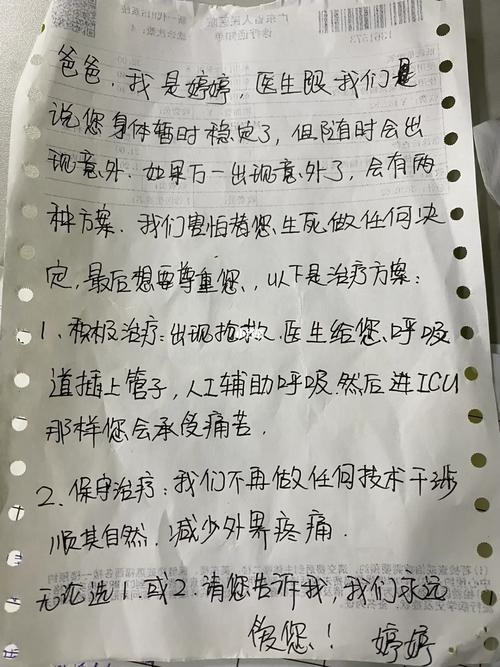 爸爸，我是婷婷，医生跟我们是
说您身体暂时稳定了，但随时会出
现意外。如果万一出现意外了，会有两
种方案。我们害怕替您生死做任何决
定，最后想要尊重您，以下是治疗方案：
1、积极治疗：出现抢救，医生给您呼吸
道插上管子，人工辅助呼吸，然后进ICU
那样您会承受痛苦。
2、保守治疗：我们不再做任何技术干涉
顺其自然，减少外界疼痛。
无论选1或2，请您告诉我，我们永远
爱您！ 婷婷